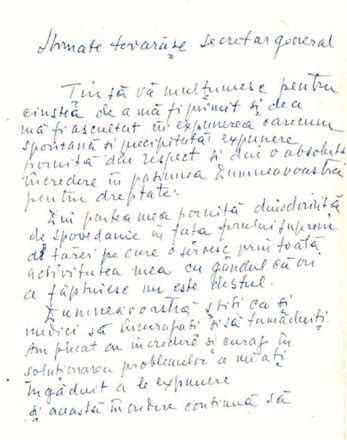 Stimate tovarășe secretar general
Țin să vă mulțumesc pentru
cinstea de a mă fi primit și de a
mă fi ascultat în expunerea oarecum
spontană și precipitată expunere
pornită din respect și din o absolută
încredere în patiunea Dumneavoastră
pentru dreptate.
Din partea mea pornită din dorință
de spovedanie în fața forului suprem
al țării pe care o servesc prin toată
activitatea mea cu gândul că ori
a făptuiesc nu este destul.
Dumneavoastră știți ca și
medici să încurajați și să tămăduiți.
Am plecat cu încredere și curaj în
soluționarea problemelor ce mi-ați
îngăduit a le expunere
și această încredere continuă să